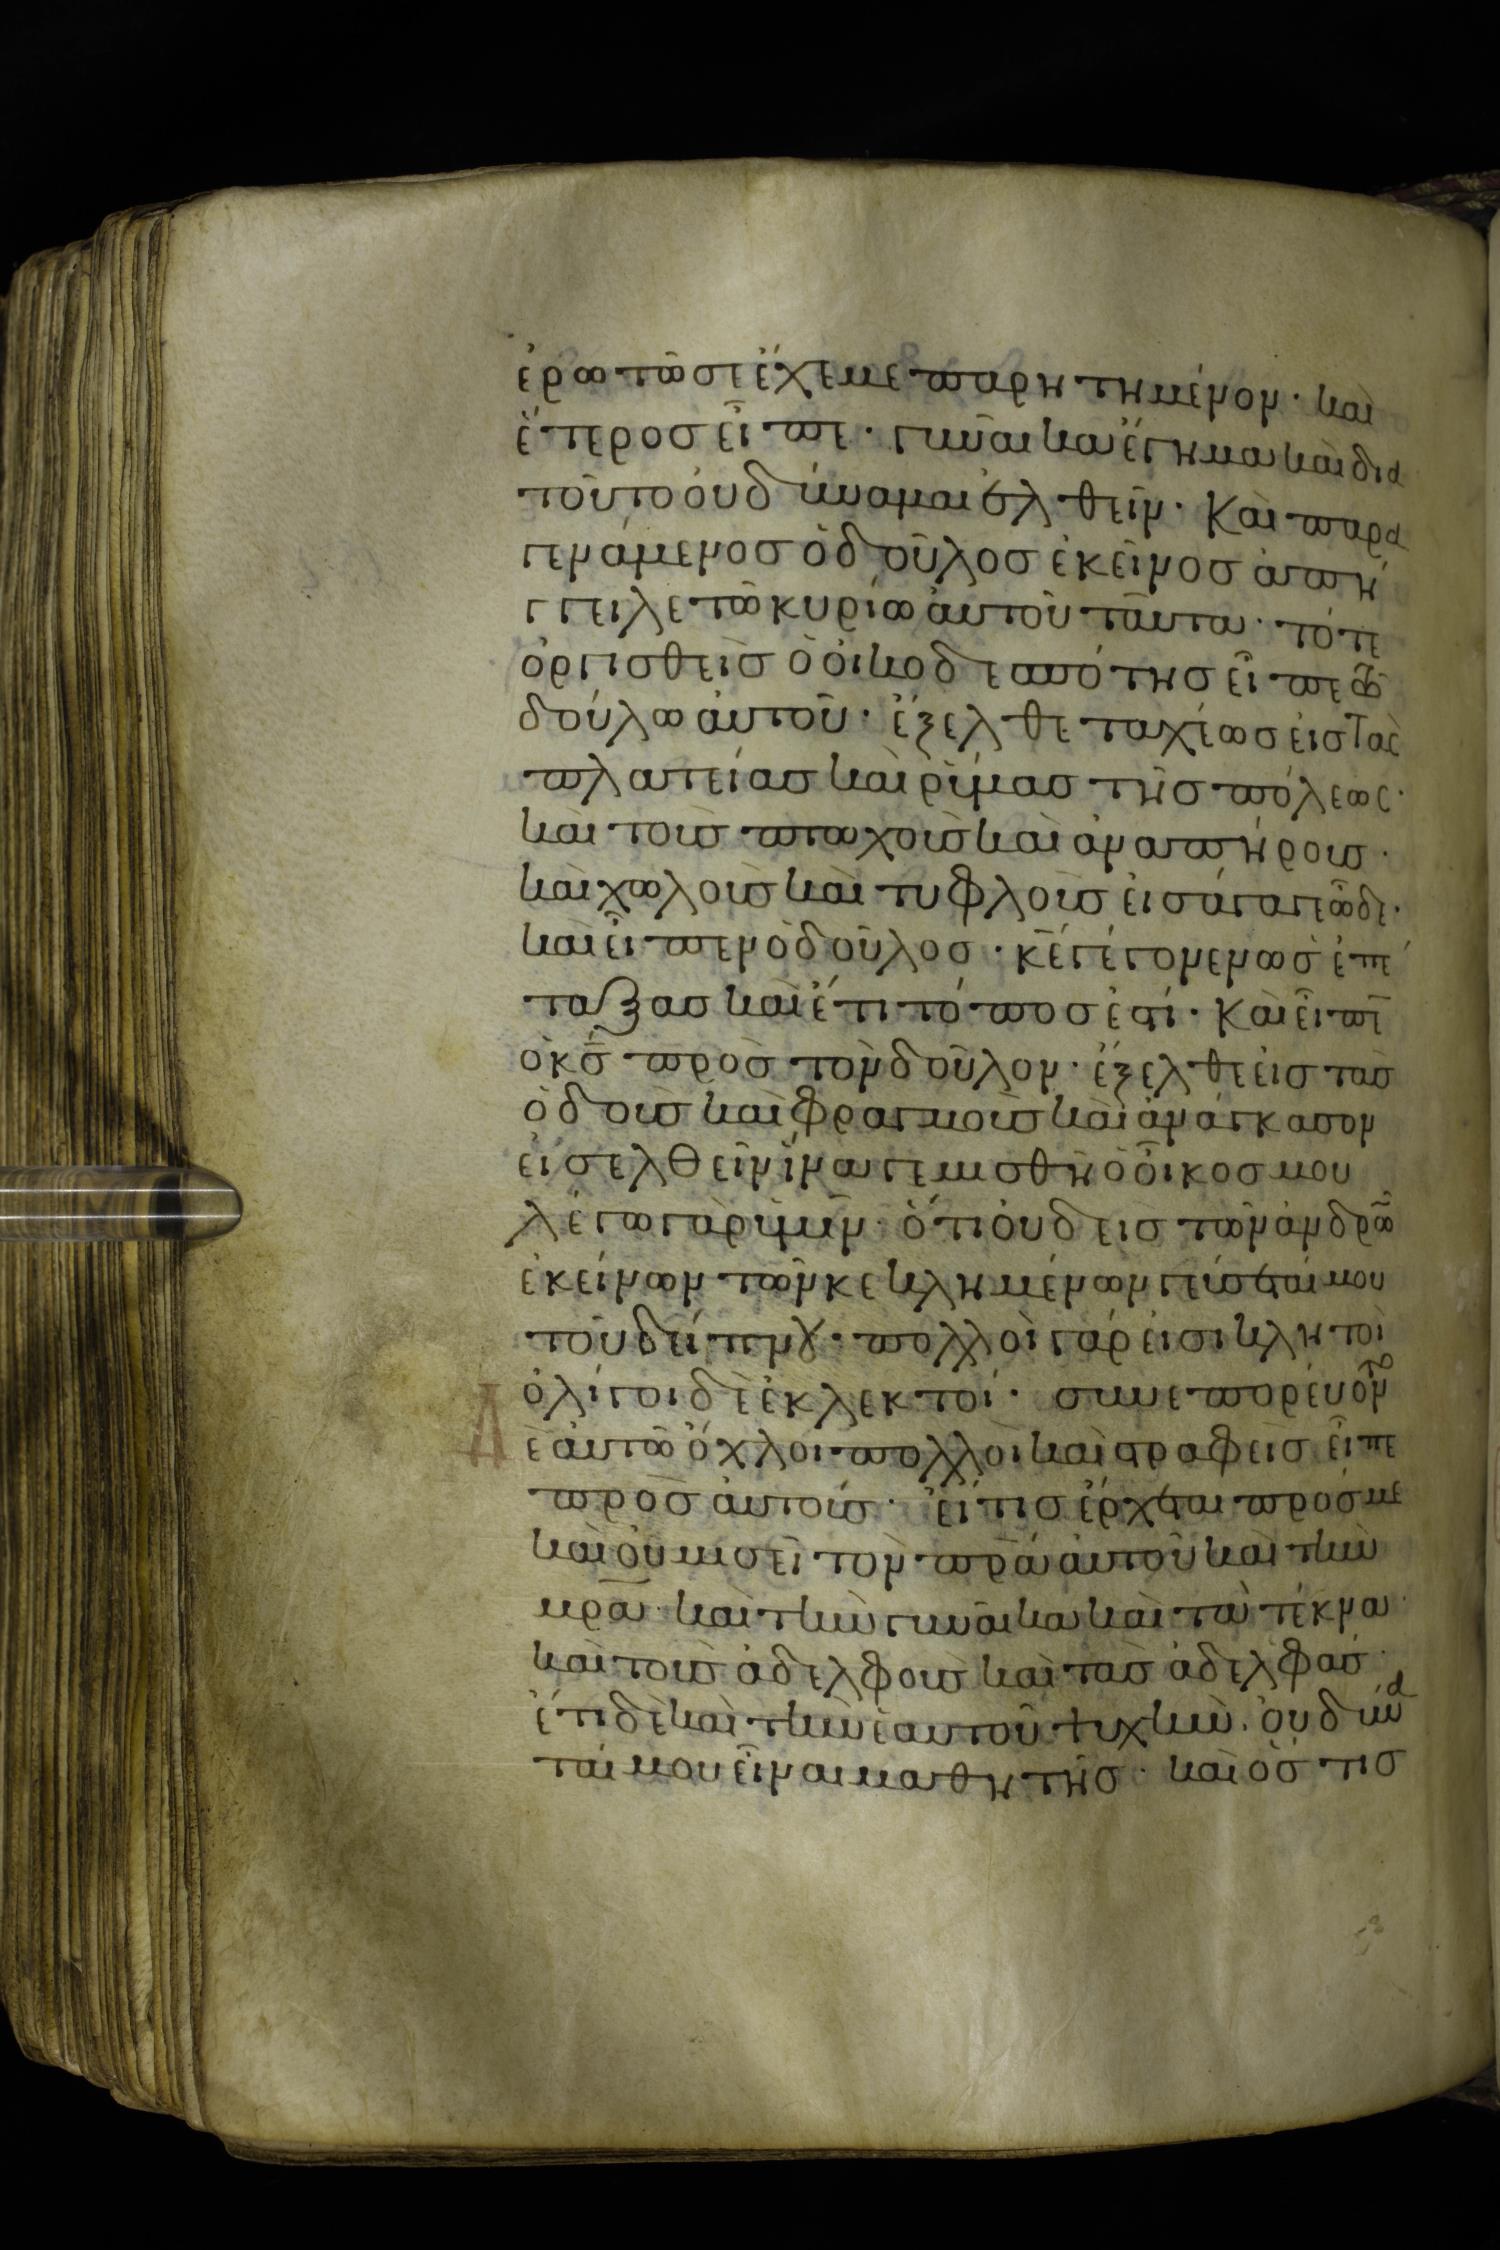 ἐρωτῶ σε ἔχε με παρητημένον · καὶ
ἕτερος εἶπε · γυναῖκα ἔγημα καὶ δια
τοῦτο ὀυ δύναμαι ἐλθεῖν · Καὶ παρα
γενόμενος ὁ δοῦλος ἐκεῖνος ἀπήγ
γειλε τῶ κυρίω ἀυτοῦ ταῦτα · τότε
ὀργισθεὶς ὁ ὀικοδεσπότης εἶπε τῶ
δούλω ἀυτοῦ · ἔξελθε ταχέως ἐις τὰς
πλατείας καὶ ρύμας τῆς πόλεως ·
καὶ τοὺς πτωχοὺς καὶ ἀναπήρους ·
καὶ χωλοὺς καὶ τυφλοὺς ἐισάγαγε ὧδε ·
καὶ εἶπεν ὁ δοῦλος · κ̅ε̅ γέγονεν ὡς ἐπέ
ταξας καὶ ἔτι τόπος ἐστί · Καὶ εἶπε
ὁ κ̅ς̅ πρὸς τὸν δοῦλον · ἔξελθε ἐις τὰς
ὁδοὺς καὶ φραγμοὺς καὶ ἀνάγκασον
εἰσελθεῖν ἵνα γεμισθῆ ὁ οἶκος μου
λέγω γὰρ ὑμῖν · ὅτι ὀυδεὶς τῶν ἀνδρῶ
ἐκείνων τῶν κεκλημένων γεύσεταί μου
τοῦ δείπνου · πολλοὶ γάρ ἐισι κλητοὶ
ὀλίγοι δὲ ἐκλεκτοί · συνεπορεύοντο
δὲ ἀυτῶ ὄχλοι πολλοὶ καὶ στραφεὶς εἶπε
πρὸς ἀυτούς · ἔι τις ἔρχεται πρός με
καὶ ὀυ μισεῖ τὸν π̅ρ̅α̅ ἀυτοῦ καὶ τὴν
μ̅ρ̅α̅ · καὶ τὴν γυναῖκα καὶ τὰ τέκνα ·
καὶ τοὺς ἀδελφοὺς καὶ τὰς ἀδελφάς ·
ἔτι δὲ καὶ τὴν ἑαυτοῦ ψυχὴν · ὀυ δύνα
ταί μου εἶναι μαθητῆς · καὶ ὅς τις